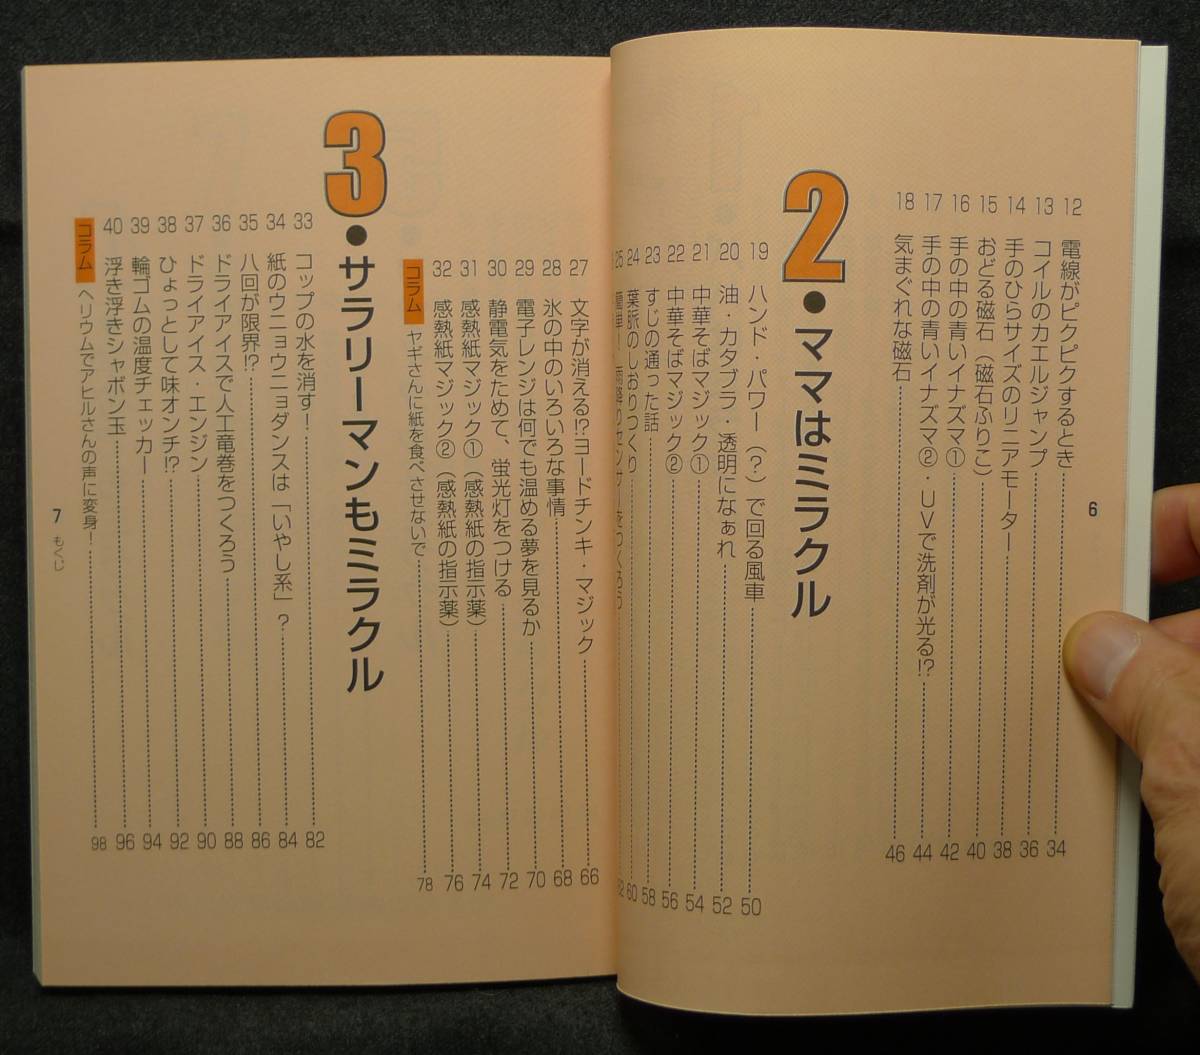 12 電線がピクピクするとき 34
13 コイルのカエルジャンプ 36
14 手のひらサイズのリニアモーター 38
15 おどる磁石（磁石ふりこ） 40
16 手の中の青いイナズマ① 42
17 手の中の青いイナズマ②・UVで洗剤が光る!? 44
18 気まぐれな磁石 46
2・ママはミラクル
19 ハンド・パワー（？）で回る風車 50
20 油・カタブラ・透明になぁれ 52
21 中華そばマジック① 54
22 中華そばマジック② 56
23 すじの通った話 58
24 葉脈のしおりつくり 60
25 簡単！雨降りセンサーをつくろう 62
6
27 文字が消える!?ヨードチンキ・マジック 66
28 氷の中のいろいろな事情 68
29 電子レンジは何でも温める夢を見るか 70
30 静電気をためて、蛍光灯をつける 72
31 感熱紙マジック①（感熱紙の指示薬） 74
32 感熱紙マジック②（感熱紙の指示薬） 76
コラム ヤギさんに紙を食べさせないで 78
3・サラリーマンもミラクル
33 コップの水を消す！ 82
34 紙のウニョウニョダンスは「いやし系」？ 84
35 八回が限界!? 86
36 ドライアイスで人工竜巻をつくろう 88
37 ドライアイス・エンジン 90
38 ひょっとして味オンチ!? 92
39 輪ゴムの温度チェッカー 94
40 浮き浮きシャボン玉 96
コラム ヘリウムでアヒルさんの声に変身！ 98
7 もくじ